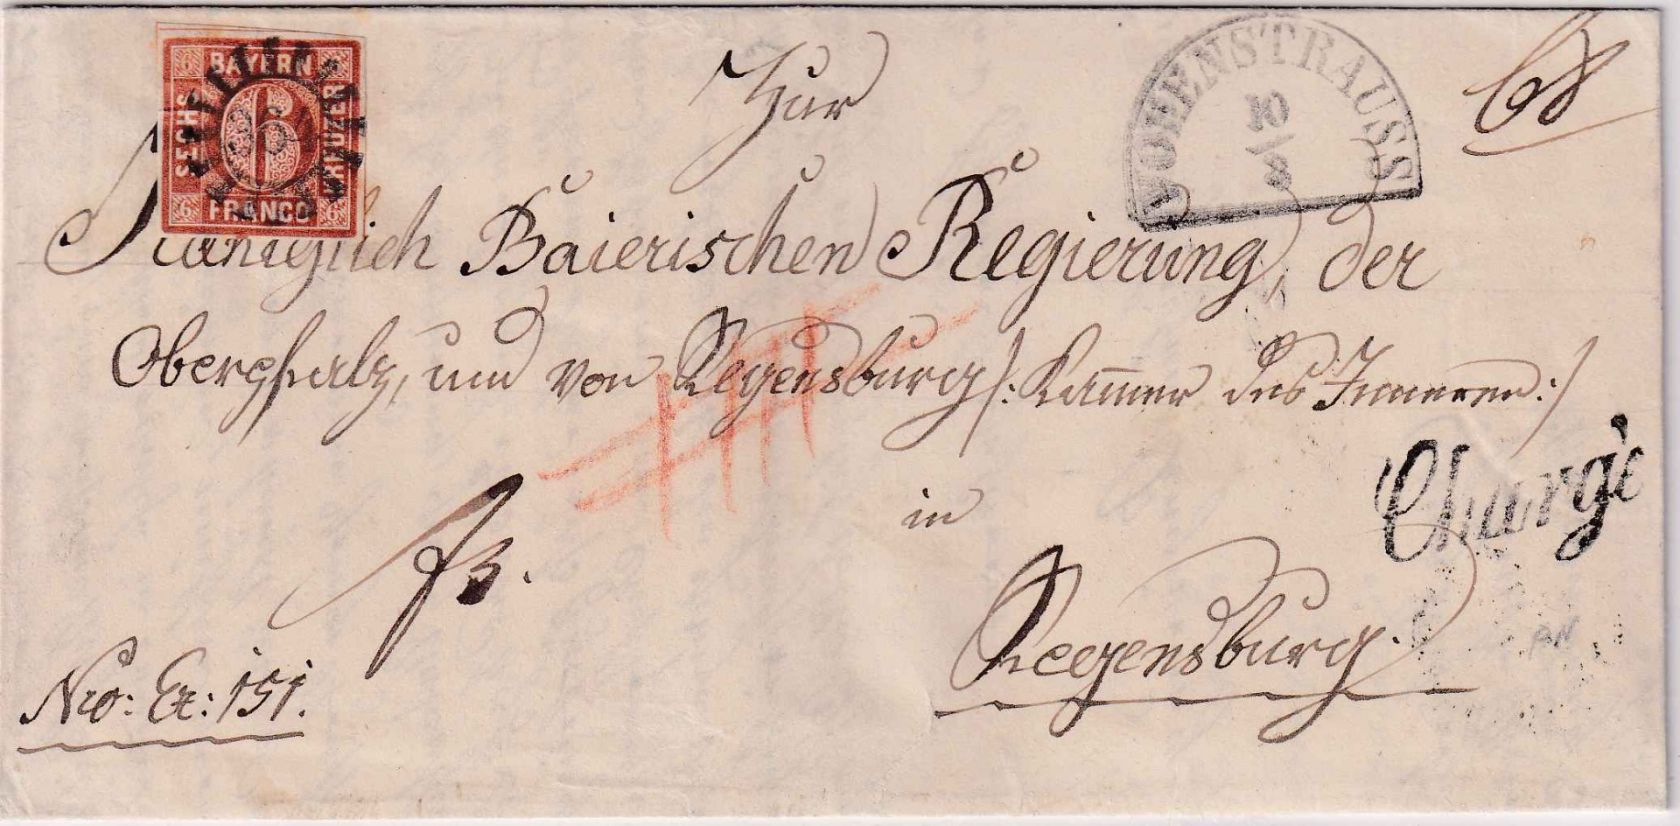 BAYERN
SECHS
KREUZER
FRANCO
6
6
6
6
6
WOHENSTRAUSS
10
8
Zur
Königlich Baierischen Regierung, der
Oberpfalz, und von Regensburg /: Kammer des Inneren :/
Chargé
in
Regensburg.
Nro: Ex: 151.